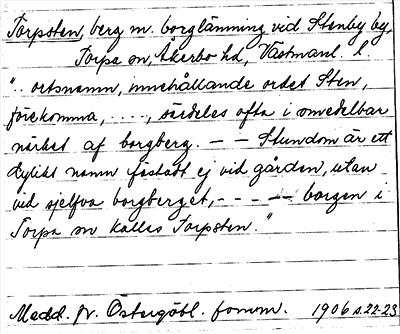 Torpsten, berg m. borglämning vid Stenby by,
Torpa sn, Åkerbo hd, Västmanl. l.
".. ortsnamn, innehållande ordet Sten,
förekomma, ...., särdeles ofta i omedelbar
närhet af borgberg. – – Stundom är ett
dylikt namn fästadt ej vid gården, utan
vid sjelfva borgberget, – – – – – borgen i
Torpa sn kallas Torpsten."
Medd. fr. Östergötl. fornm. 1906 s. 22-23